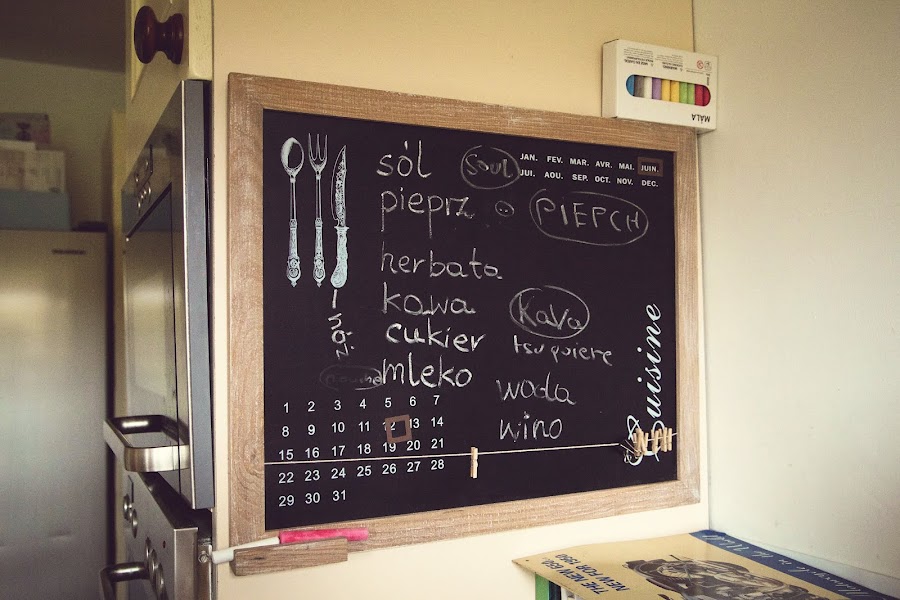 sól
soul
JAN. FEV. MAR. AVR. MAI. JUIN.
JUI. AOU. SEP. OCT. NOV. DEC.
pieprz
PIEPCH
herbata
kawa
Kava
cukier
mleko
woda
wino
Cuisine
1 2 3 4 5 6 7
8 9 10 11 12 13 14
15 16 17 18 19 20 21
22 23 24 25 26 27 28
29 30 31
MÅLA
THE NEW 150.
NEW FOR 1950